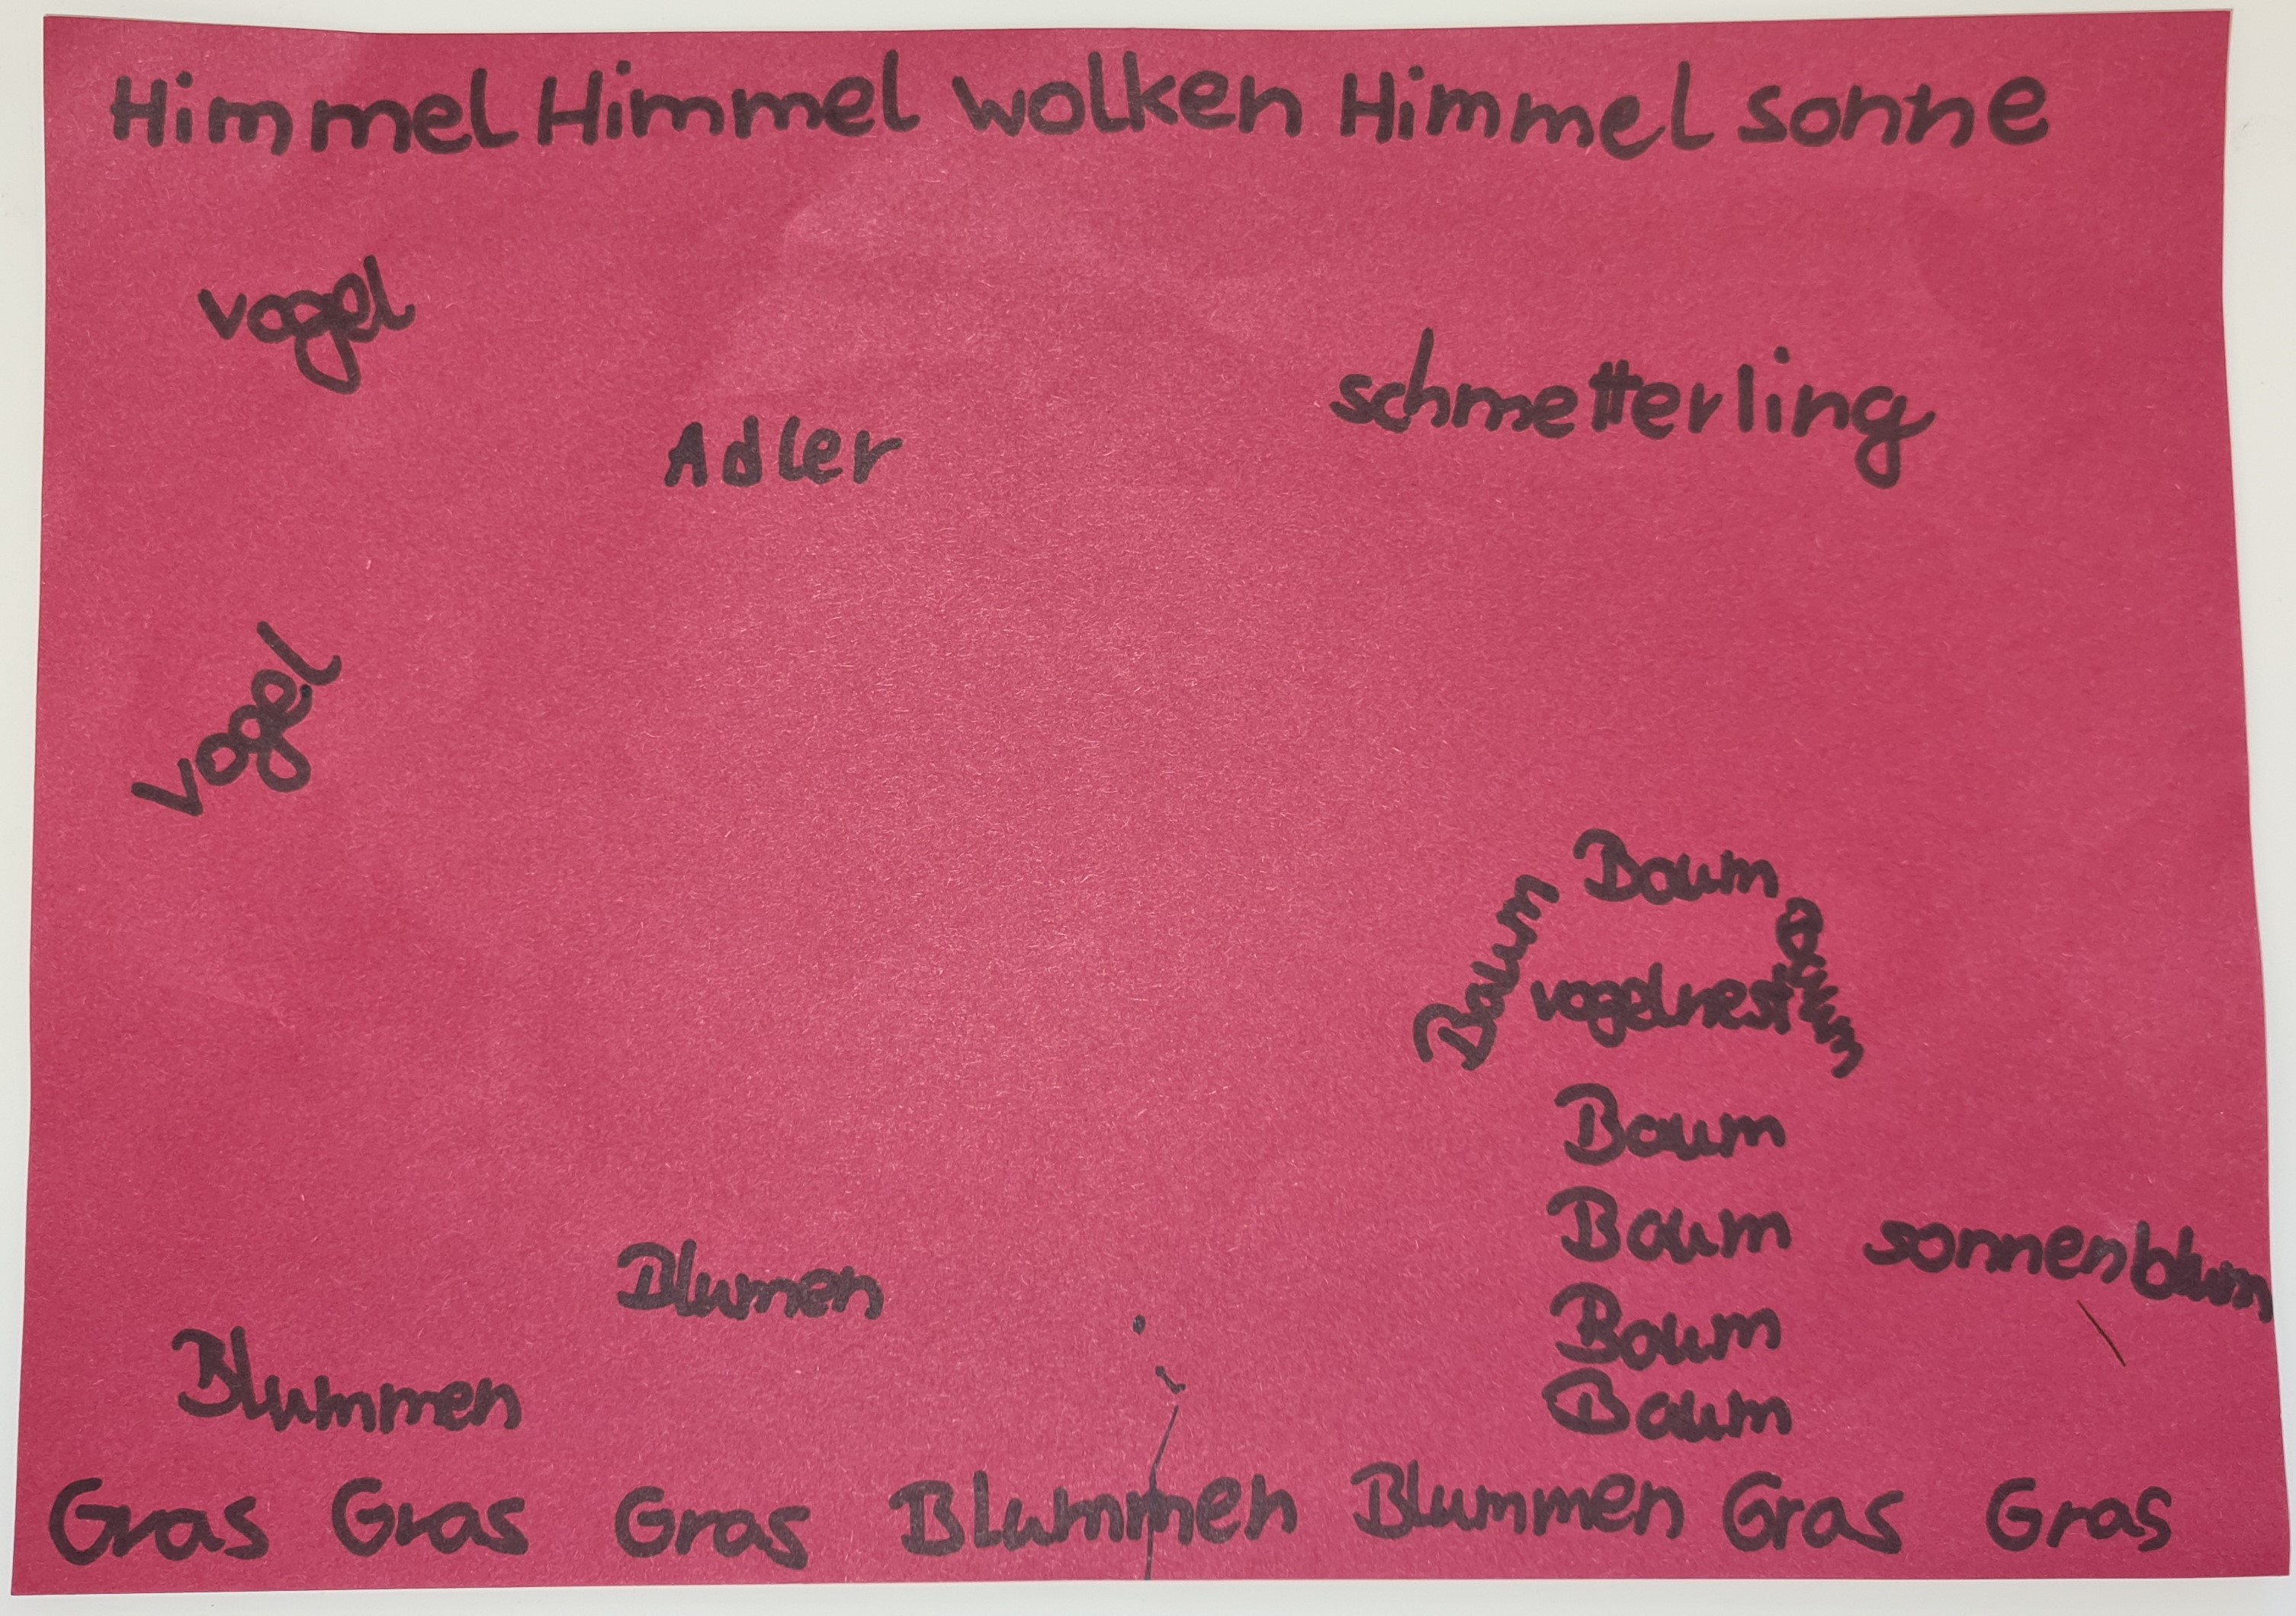 Himmel Himmel wolken Himmel sonne
vogel
schmetterling
Adler
vogel
Baum
Baum
Baum
vogelnest
Baum
Baum
sonnenblum
Blumen
Baum
Blummen
Baum
Gras Gras Gras Blummen Blummen Gras Gras